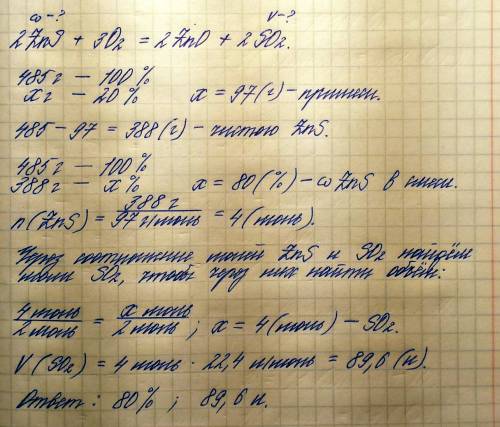 ω-? V-?
2ZnS + 3O₂ = 2ZnO + 2SO₂.
485 г — 100 %
x г — 20 % x = 97 (г) - примеси.
485 - 97 = 388 (г) - чистого ZnS.
485 г — 100 %
388 г — x % x = 80 (%) - ω ZnS в смеси.
n (ZnS) = 388 г / 97 г/моль = 4 (моль).
Через соотношение молей ZnS и SO₂ найдём
моли SO₂, чтобы через них найти объём:
4 моль / 2 моль = x моль / 2 моль ; x = 4 (моль) - SO₂.
V (SO₂) = 4 моль · 22,4 л/моль = 89,6 (л).
Ответ : 80 % ; 89,6 л.